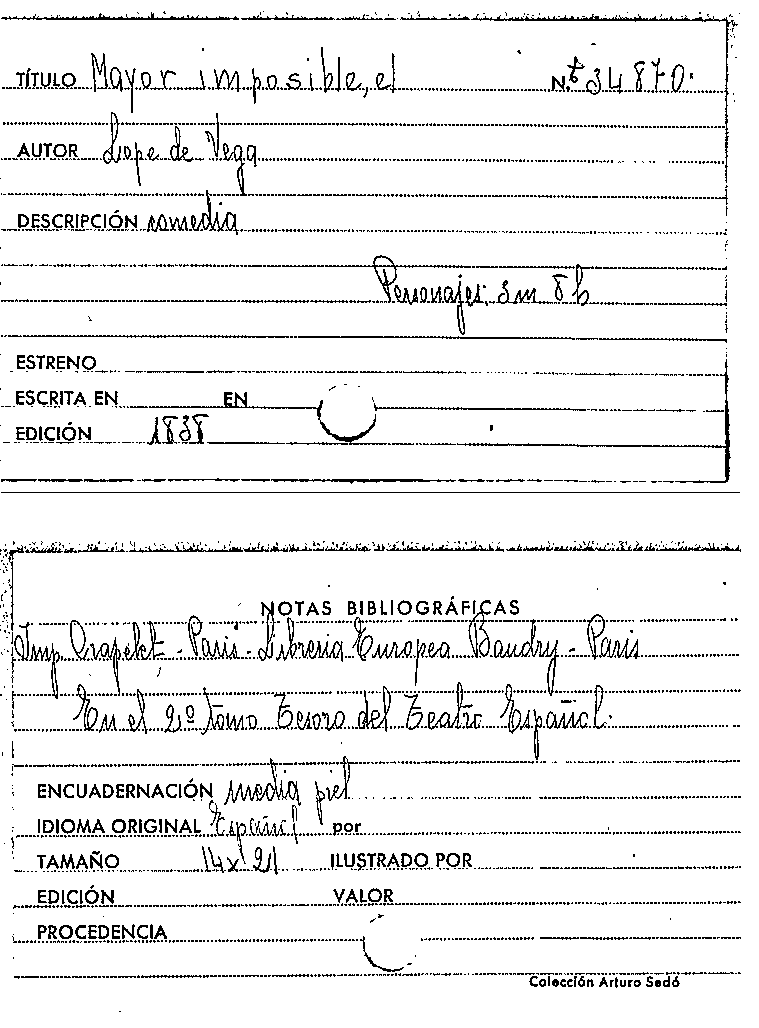 TÍTULO Mayor imposible, el N.º 34870.
AUTOR Lope de Vega
DESCRIPCIÓN comedia
Personajes: 3m 8h
ESTRENO
ESCRITA EN EN
EDICIÓN 1838
NOTAS BIBLIOGRÁFICAS
Imp. Crapelet - Paris - Libreria Europea Baudry - Paris
En el 2º tomo Tesoro del Teatro Español.
ENCUADERNACIÓN media piel
IDIOMA ORIGINAL Español por
TAMAÑO 14x21 ILUSTRADO POR
EDICIÓN VALOR
PROCEDENCIA
Colección Arturo Sedó